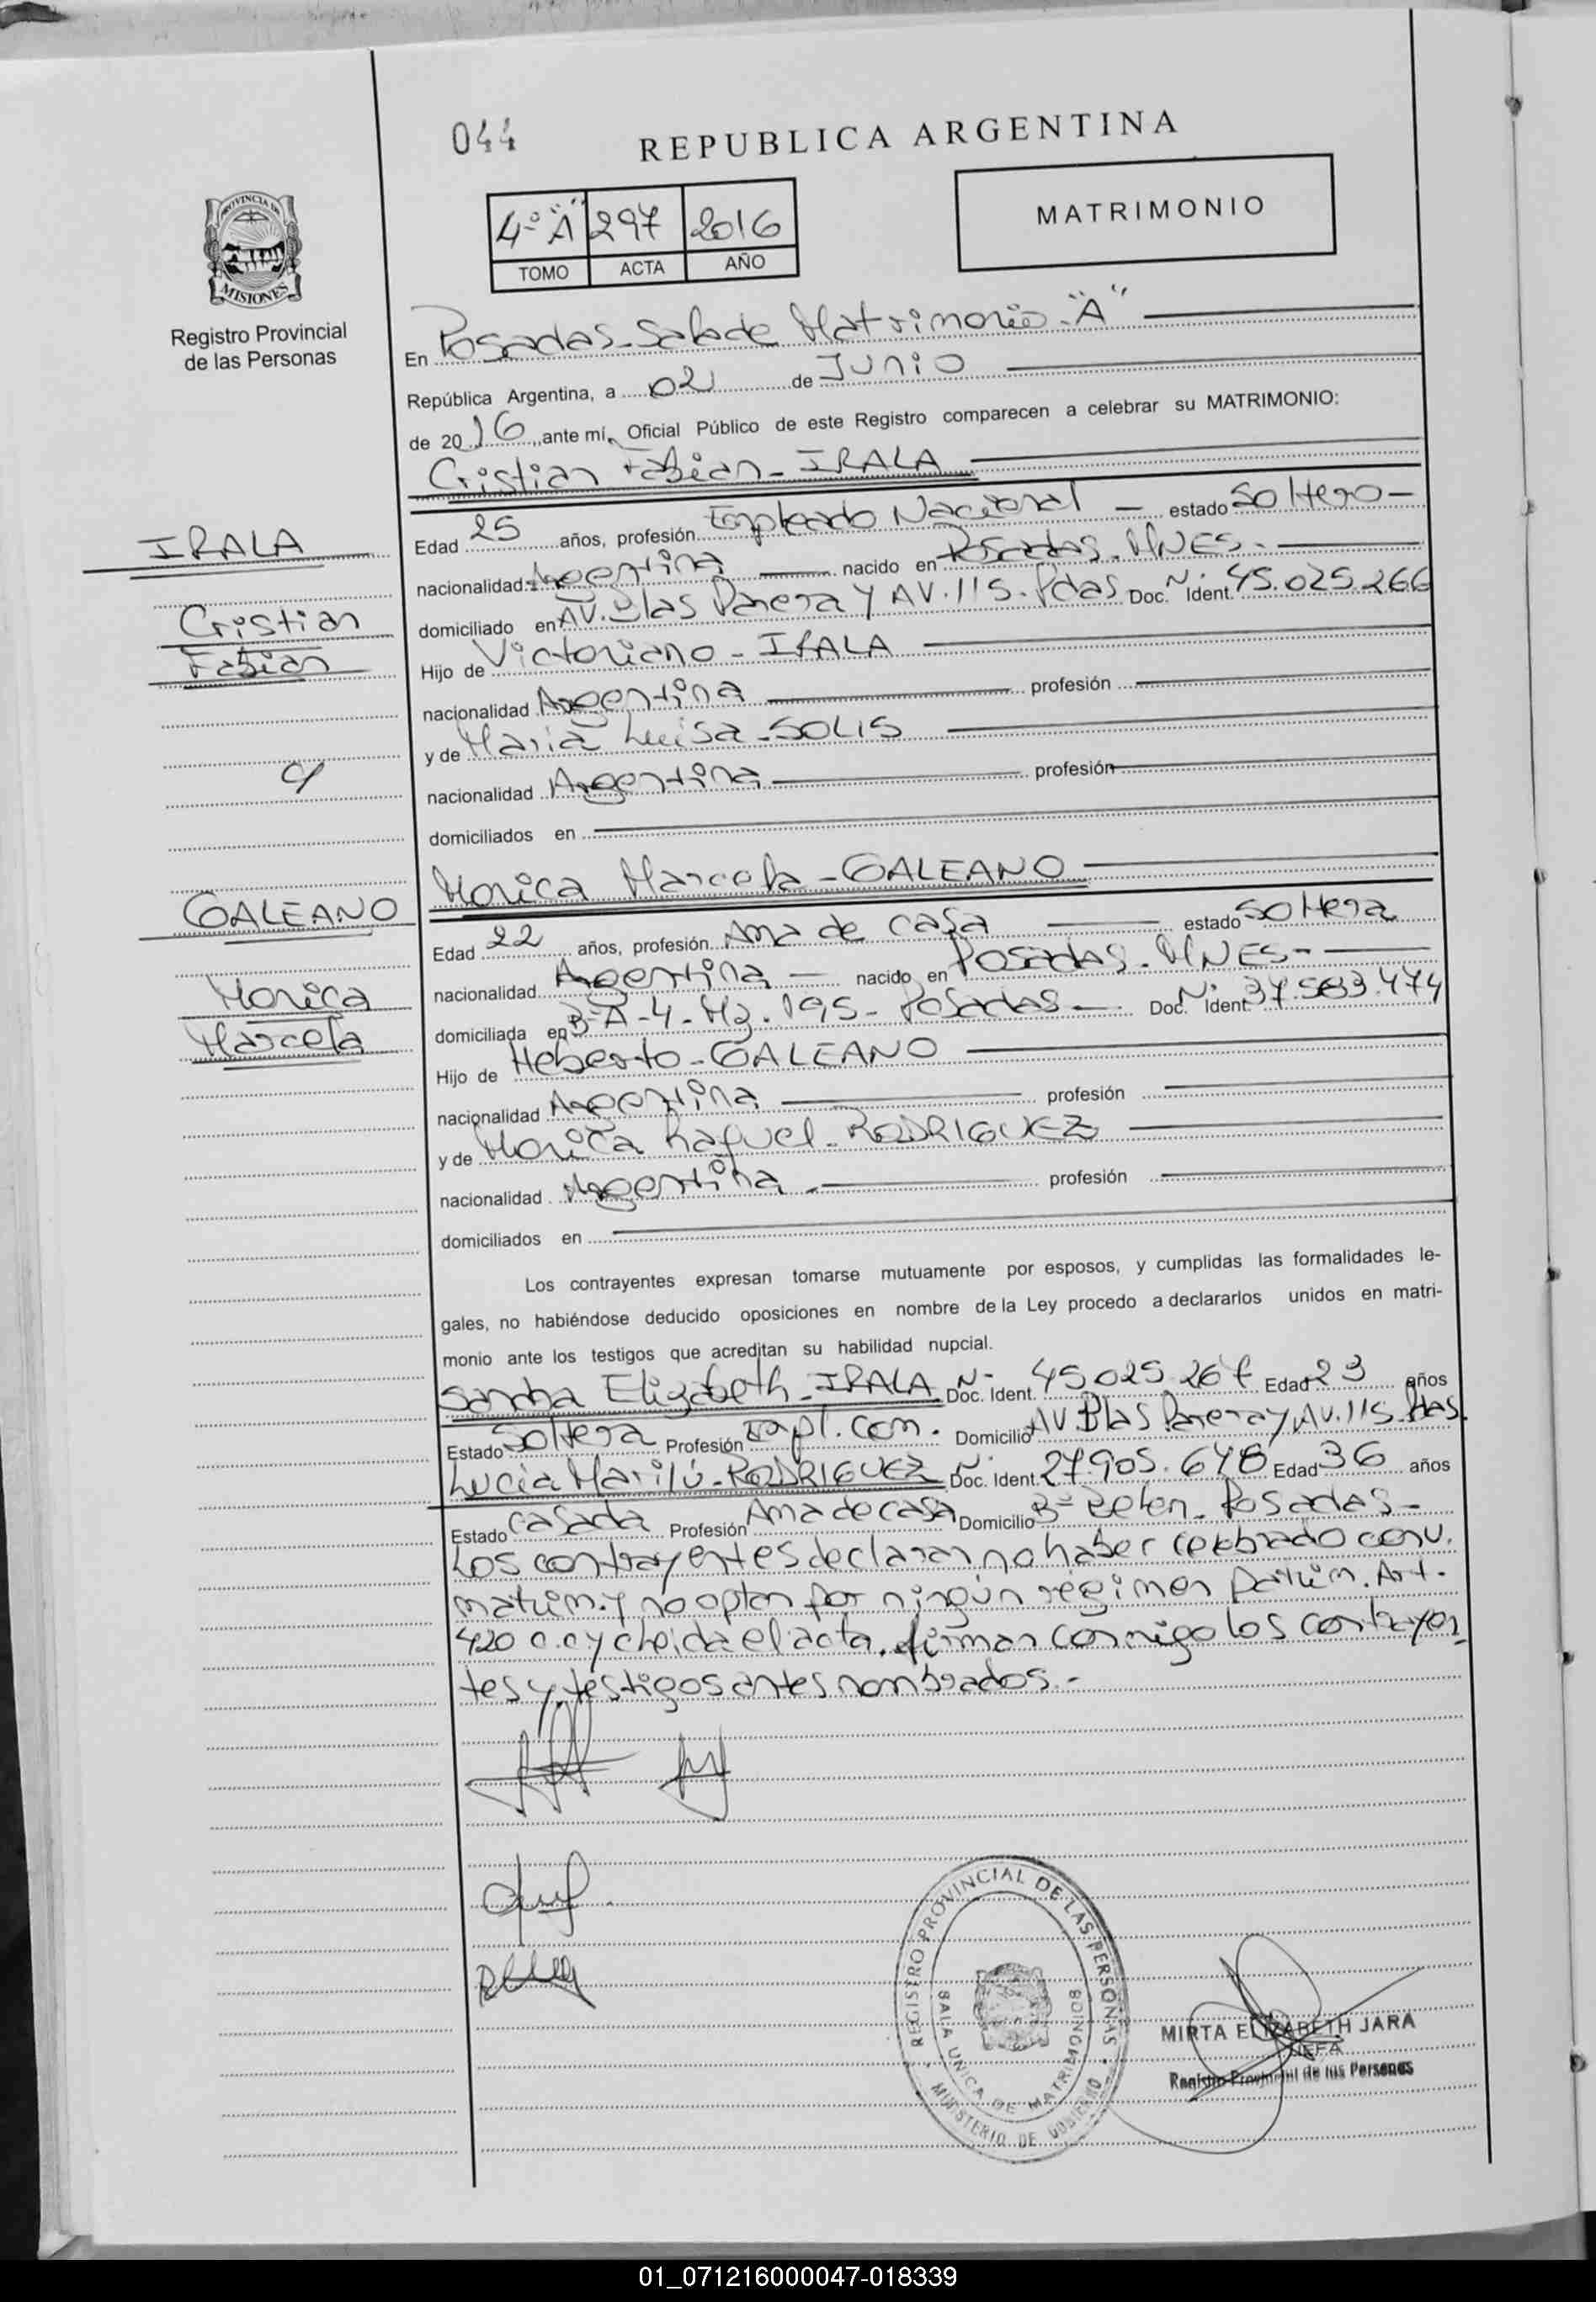 044
REPUBLICA ARGENTINA
4º "A" 297 2016
TOMO ACTA AÑO
MATRIMONIO
PROVINCIA DE
MISIONES
Registro Provincial
de las Personas
En Posadas - Sala de Matrimonio "A"
República Argentina, a 02 de Junio
de 2016, ante mí, Oficial Público de este Registro comparecen a celebrar su MATRIMONIO:
Cristian Fabian - IRALA
IRALA
Cristian
Fabian
c/
GALEANO
Monica
Marcela
Edad 25 años, profesión Empleado Nacional - estado Soltero -
nacionalidad Argentina nacido en Posadas. MNES. -
domiciliado en AV. Blas Parera y AV. 115. Pdas Doc. Nº Ident. 45.025.266
Hijo de Victoriano - IRALA
nacionalidad Argentina profesión
y de Maria Luisa - SOLIS
nacionalidad Argentina profesión
domiciliados en
Monica Marcela - GALEANO
Edad 22 años, profesión Ama de casa estado Soltera
nacionalidad Argentina - nacido en Posadas. MNES -
domiciliada en Bº A-4 - Mz. 195 - Posadas - Doc. Nº Ident. 37.583.474
Hijo de Heberto - GALEANO
nacionalidad Argentina profesión
y de Monica Raquel - RODRIGUEZ
nacionalidad Argentina profesión
domiciliados en
Los contrayentes expresan tomarse mutuamente por esposos, y cumplidas las formalidades le-
gales, no habiéndose deducido oposiciones en nombre de la Ley procedo a declararlos unidos en matri-
monio ante los testigos que acreditan su habilidad nupcial.
Sandra Elizabeth - IRALA Doc. Nº Ident. 45.025.267 Edad 23 años
Estado Soltera Profesión Empl. Com. Domicilio AV. Blas Parera y AV. 115. Pdas.
Lucia Marilú - RODRIGUEZ Doc. Nº Ident. 27.905.678 Edad 36 años
Estado Casada Profesión Ama de casa Domicilio Bº Belen. Posadas -
Los contrayentes declaran no haber celebrado conv.
matrim. y no optan por ningún régimen patrim. Art.
420 c.c y leida el acta. firman conmigo los contrayen
tes y testigos antes nombrados. -
REGISTRO PROVINCIAL DE LAS PERSONAS
SALA UNICA DE MATRIMONIOS
MINISTERIO DE GOBIERNO
MIRTA ELIZABETH JARA
JEFA
Registro Provincial de las Personas
01_071216000047-018339